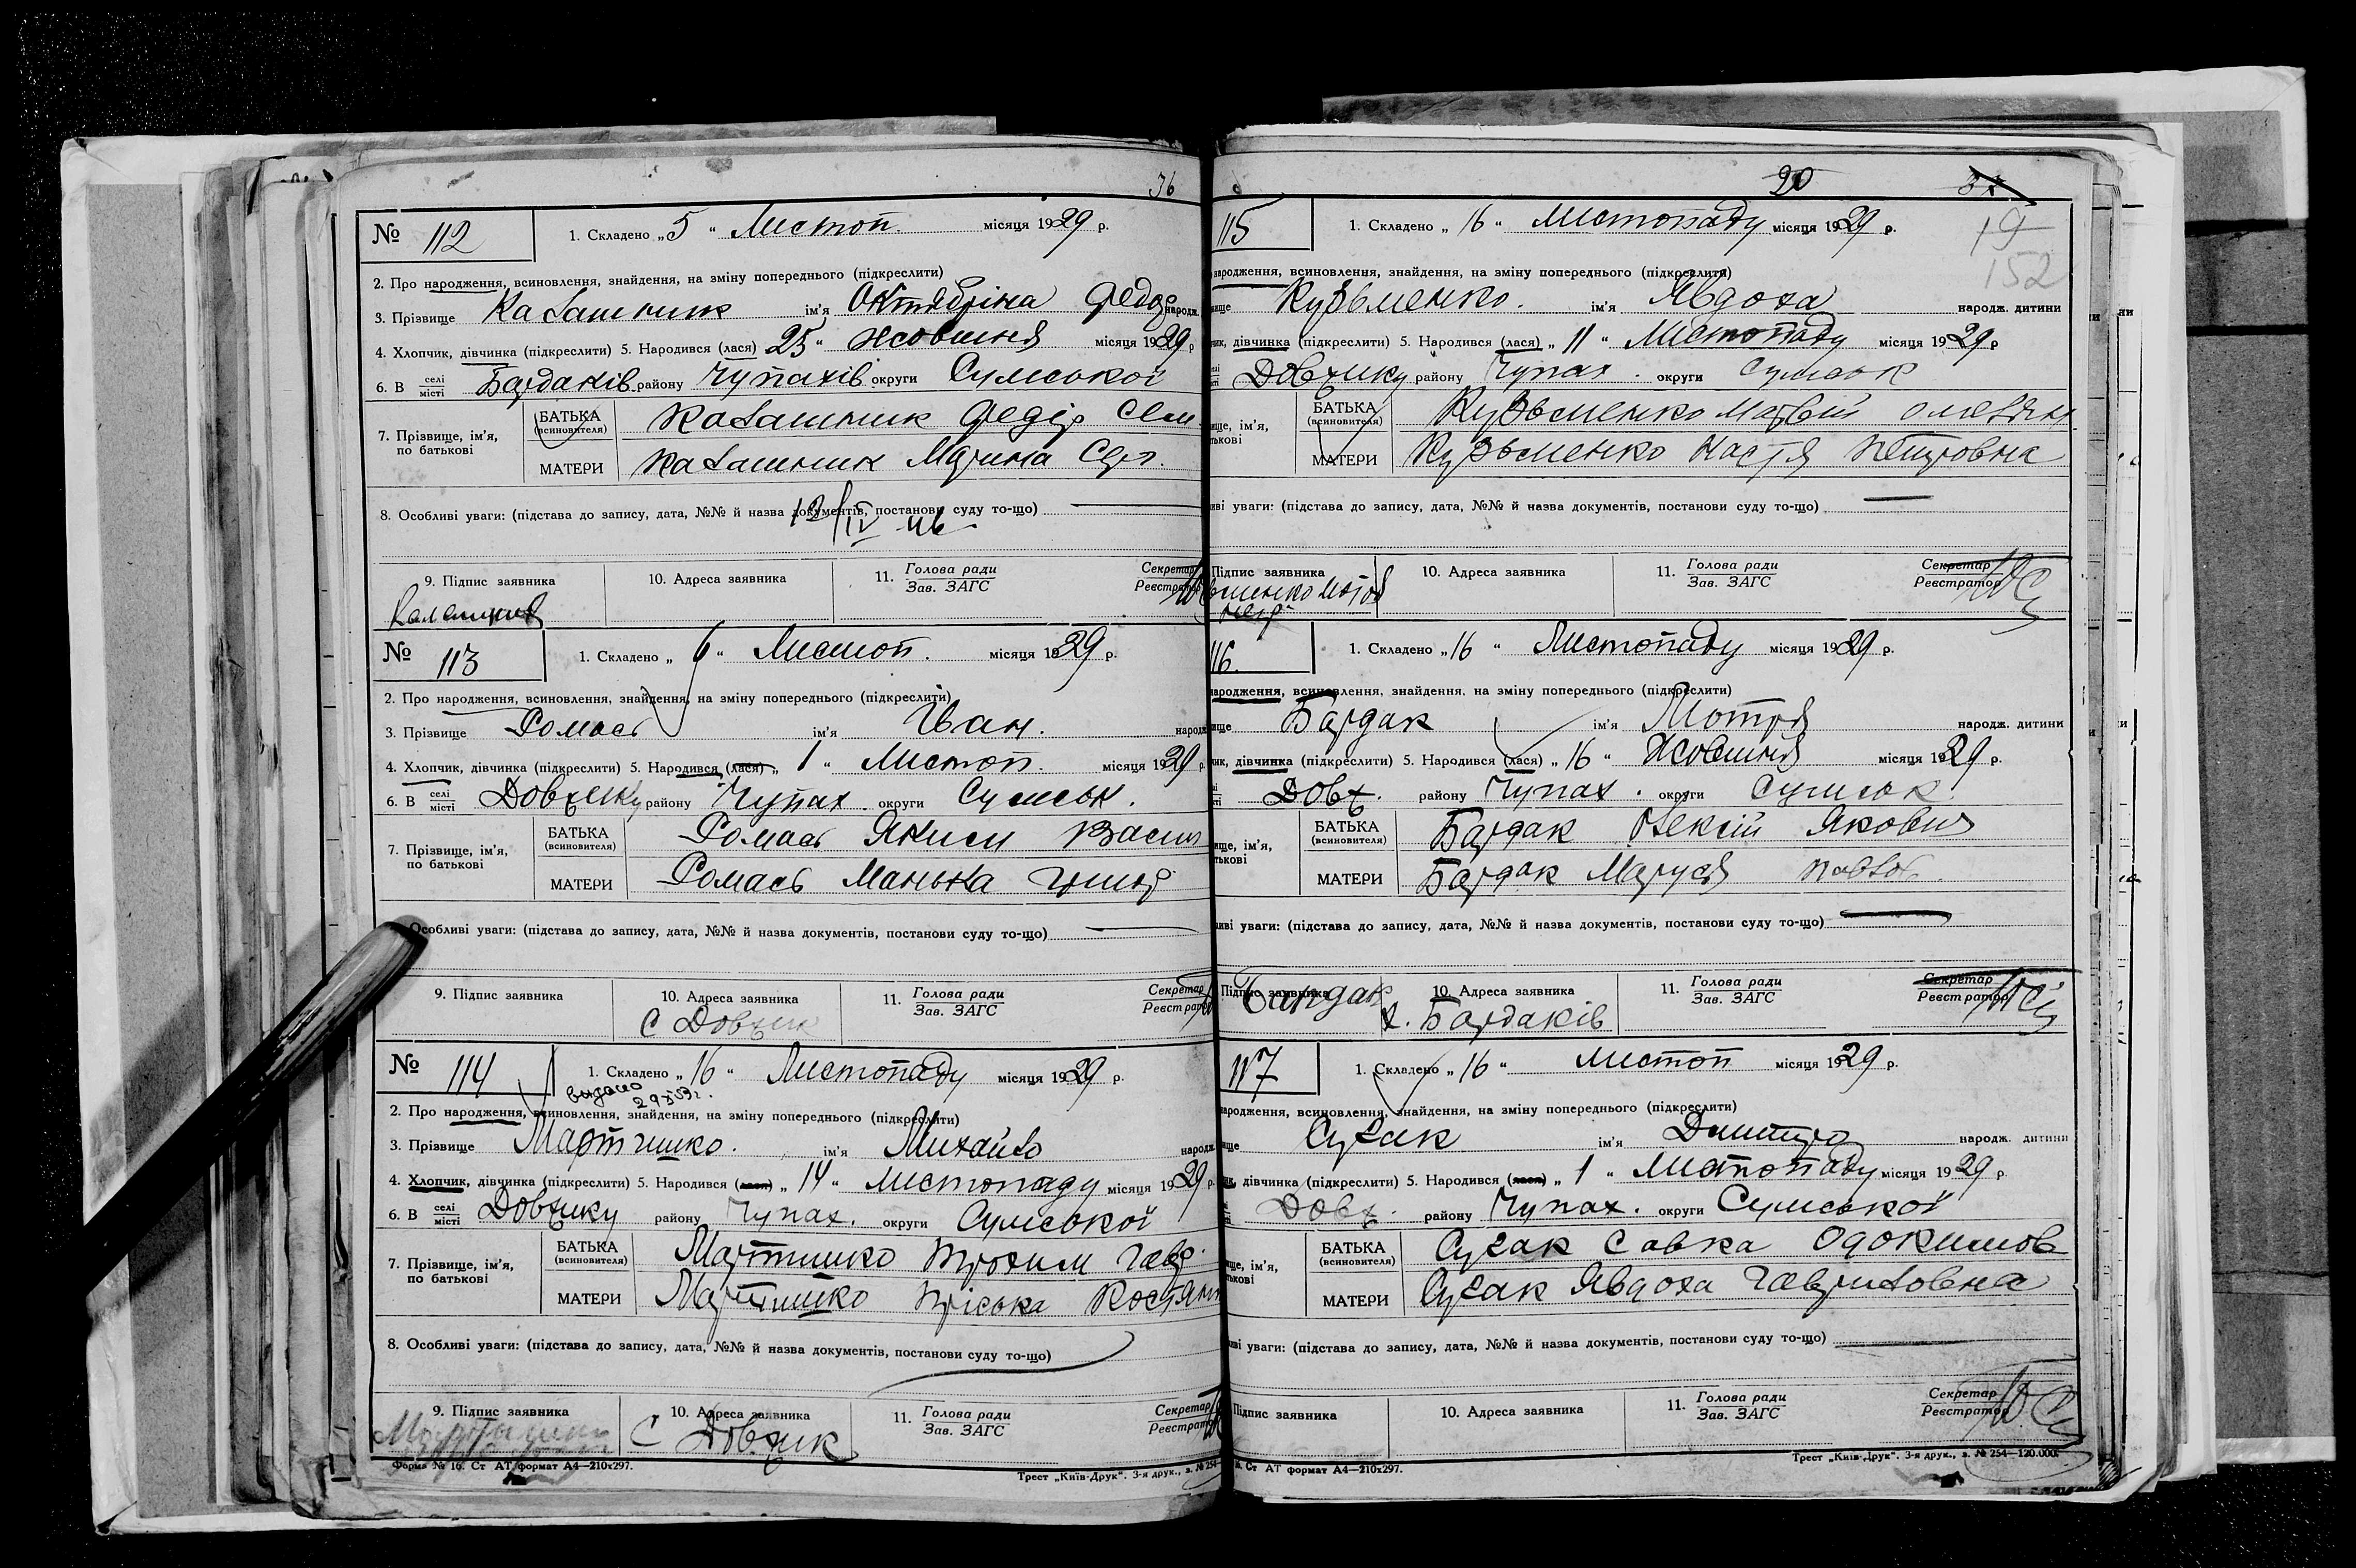 36
№ 112
1. Складено „ 5 “ Листоп. місяця 1929 р.
2. Про народження, всиновлення, знайдення, на зміну попереднього (підкреслити)
3. Прізвище Калашник ім'я Октябріна Федор народж.
4. Хлопчик, дівчинка (підкреслити) 5. Народився (лася) 25 “ жовтня місяця 1929 р
6. В селі місті Бардаків району Чупахів округи Сумської
7. Прізвище, ім'я, по батькові
БАТЬКА (всиновителя) Калашник Федір Сем
МАТЕРИ Калашник Марина Сер.
8. Особливі уваги: (підстава до запису, дата, №№ й назва документів, постанови суду то-що)
9. Підпис заявника 10. Адреса заявника 11. Голова ради Зав. ЗАГС Секретар Реєстратор
№ 113
1. Складено „ 6 “ Листоп. місяця 1929 р.
2. Про народження, всиновлення, знайдення, на зміну попереднього (підкреслити)
3. Прізвище Ромась ім'я Іван. народж
4. Хлопчик, дівчинка (підкреслити) 5. Народився (лася) „ 1 “ Листоп. місяця 1929 р.
6. В селі місті Довжику району Чупах. округи Сумськ.
7. Прізвище, ім'я, по батькові
БАТЬКА (всиновителя) Ромась Яким Васил
МАТЕРИ Ромась Манька Григор
Особливі уваги: (підстава до запису, дата, №№ й назва документів, постанови суду то-що)
9. Підпис заявника 10. Адреса заявника 11. Голова ради Зав. ЗАГС Секретар Реєстратор
С Довжик
№ 114
1. Складено „ 16 “ Листопаду місяця 1929 р.
видано
2. Про народження, всиновлення, знайдення, на зміну попереднього (підкреслити)
3. Прізвище Мартишко. ім'я Михайло народж
4. Хлопчик, дівчинка (підкреслити) 5. Народився (лася) „ 14 “ листопаду місяця 1929 р.
6. В селі місті Довжику району Чупах. округи Сумської
7. Прізвище, ім'я, по батькові
БАТЬКА (всиновителя) Мартишко Трохим Гавр.
МАТЕРИ Мартишко Пріська Костянт
8. Особливі уваги: (підстава до запису, дата, №№ й назва документів, постанови суду то-що)
9. Підпис заявника 10. Адреса заявника 11. Голова ради Зав. ЗАГС Секретар Реєстратор
С Довжик
Форма № 16. Ст АТ формат А4—210x297.
Трест „Київ-Друк“. 3-я друк., з. № 254
20
19
152
115
1. Складено „ 16 “ Листопаду місяця 1929 р.
народження, всиновлення, знайдення, на зміну попереднього (підкреслити)
ище Кузьменко. ім'я Явдоха народж. дитини
чик, дівчинка (підкреслити) 5. Народився (лася) „ 11 “ Листопаду місяця 1929 р
Довжику району Чупах. округи Сумськ
ище, ім'я, тькові
БАТЬКА (всиновителя) Кузьменко Матвій Омелян
МАТЕРИ Кузьменко Настя Петровна
иві уваги: (підстава до запису, дата, №№ й назва документів, постанови суду то-що)
Підпис заявника 10. Адреса заявника 11. Голова ради Зав. ЗАГС Секретар Реєстратор
116.
1. Складено „ 16 “ Листопаду місяця 1929 р.
народження, всиновлення, знайдення, на зміну попереднього (підкреслити)
ище Бардак ім'я Мотря народж. дитини
чик, дівчинка (підкреслити) 5. Народився (лася) „ 16 “ Жовтня місяця 1929 р.
Довж. району Чупах. округи Сумськ
ище, ім'я, тькові
БАТЬКА (всиновителя) Бардак Олексій Якович
МАТЕРИ Бардак Маруся Павлов.
иві уваги: (підстава до запису, дата, №№ й назва документів, постанови суду то-що)
Підпис заявника 10. Адреса заявника 11. Голова ради Зав. ЗАГС Секретар Реєстратор
х. Бардаків
117
1. Складено „ 16 “ листоп місяця 1929 р.
народження, всиновлення, знайдення, на зміну попереднього (підкреслити)
ище Сусак ім'я Дмитро народж. дитини
дівчинка (підкреслити) 5. Народився (лася) „ 1 “ Листопаду місяця 1929 р.
Довж. району Чупах. округи Сумської
ище, ім'я, тькові
БАТЬКА (всиновителя) Сусак Савка Одокимов
МАТЕРИ Сусак Явдоха Гавриловна
иві уваги: (підстава до запису, дата, №№ й назва документів, постанови суду то-що)
Підпис заявника 10. Адреса заявника 11. Голова ради Зав. ЗАГС Секретар Реєстратор
6. Ст АТ формат А4—210x297.
Трест „Київ-Друк“. 3-я друк., з. № 254—120.000.